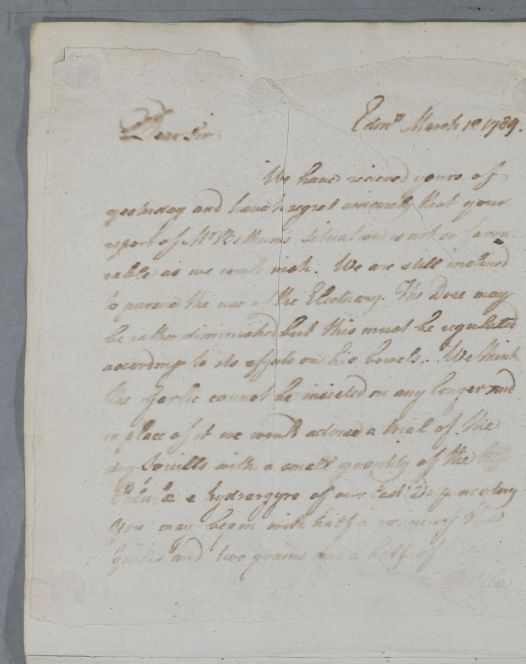 Edinr March 18 1789.
Dear Sir.
We have recieved yours of
yesterday and have to regret sincerely that your
report of Mr situation is not so favou-
rable as we could wish. We are still inclined
to pursue the use of the Electuary. The Dose may
be rather diminished but this must be regulated
according to its effects on his bowels. We think
the Garlic cannot be insisted on any longer and
in place of it we would advise a trial of the
dry Squills with a small quantity of the
Pilulae e hydrargyro of our last Dispensatory
You may begin with half a grain of the
Squills and two grains and a half of